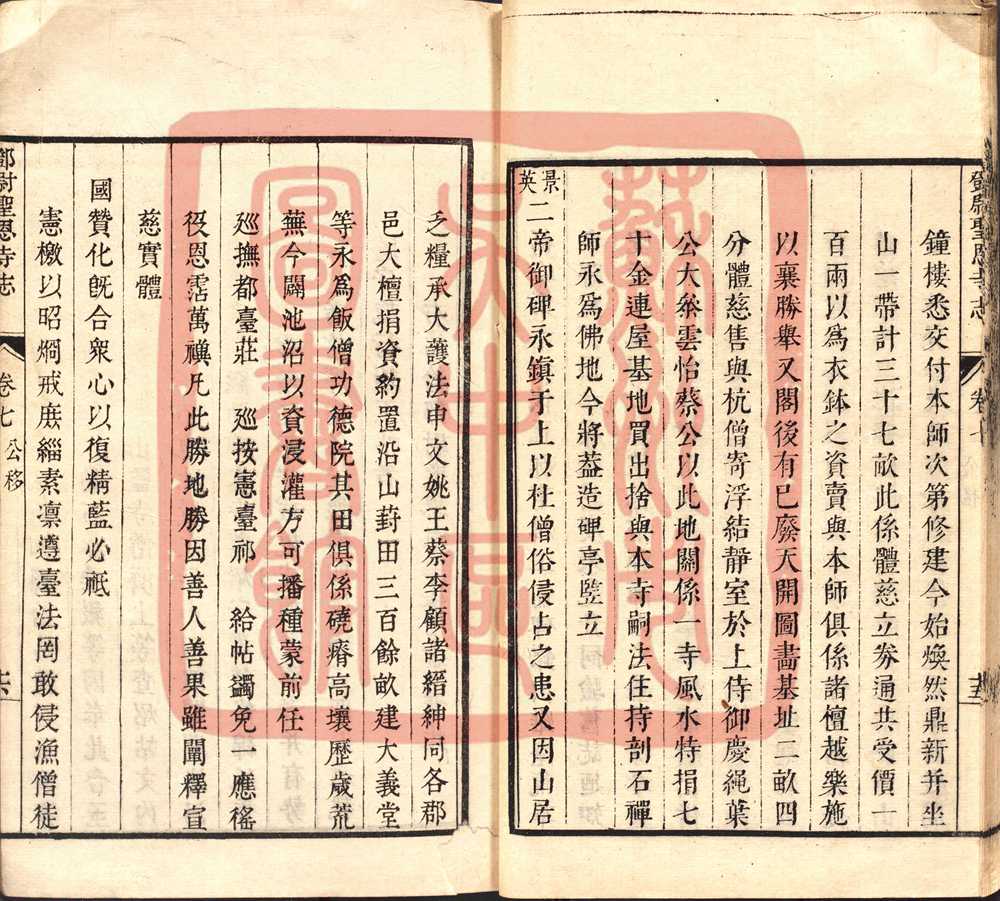 鐘樓悉交付本師次第修建今始煥然鼎新并坐
山一帶計三十七畝此係體慈立券通共受價一
百兩以為衣鉢之資賣與本師俱係諸檀越樂施
以襄勝舉又閣後有已廢天開圖畵基址一畝四
分體慈售與杭僧寄浮結靜室於上侍御慶繩葉
公大叅雲怡蔡公以此地關係一寺風水特捐七
十金連屋基地買出捨與本寺嗣法住持剖石禪
師永爲佛地今將葢造碑亭豎立
景英二帝御碑永鎮于上以杜僧俗侵占之患又因山居
乏糧承大護法申文姚王蔡李顧諸縉紳同各郡
邑大檀捐資約置沿山葑田三百餘畝建大義堂
等永爲飯僧功德院其田俱係磽瘠高壤歷歲荒
蕪今闢池沼以資浸灌方可播種蒙前任
廵撫都臺莊　廵按憲臺祁　給帖蠲免一應徭
役恩霑萬禩凡此勝地勝因善人善果雖闡釋宣
慈實體
國贊化旣合衆心以復精藍必祗
憲檄以昭烱戒庶緇素凛遵臺法罔敢侵漁僧徒
鄧尉聖恩寺志
卷七
公移